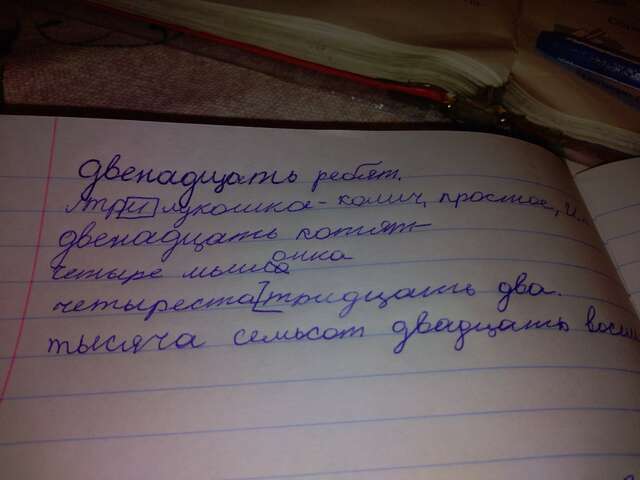 двенадцать ребят.
три лукошка - колич, простое, и.
двенадцать котят
четыре мышонка
четыреста тридцать два.
тысяча семьсот двадцать восем